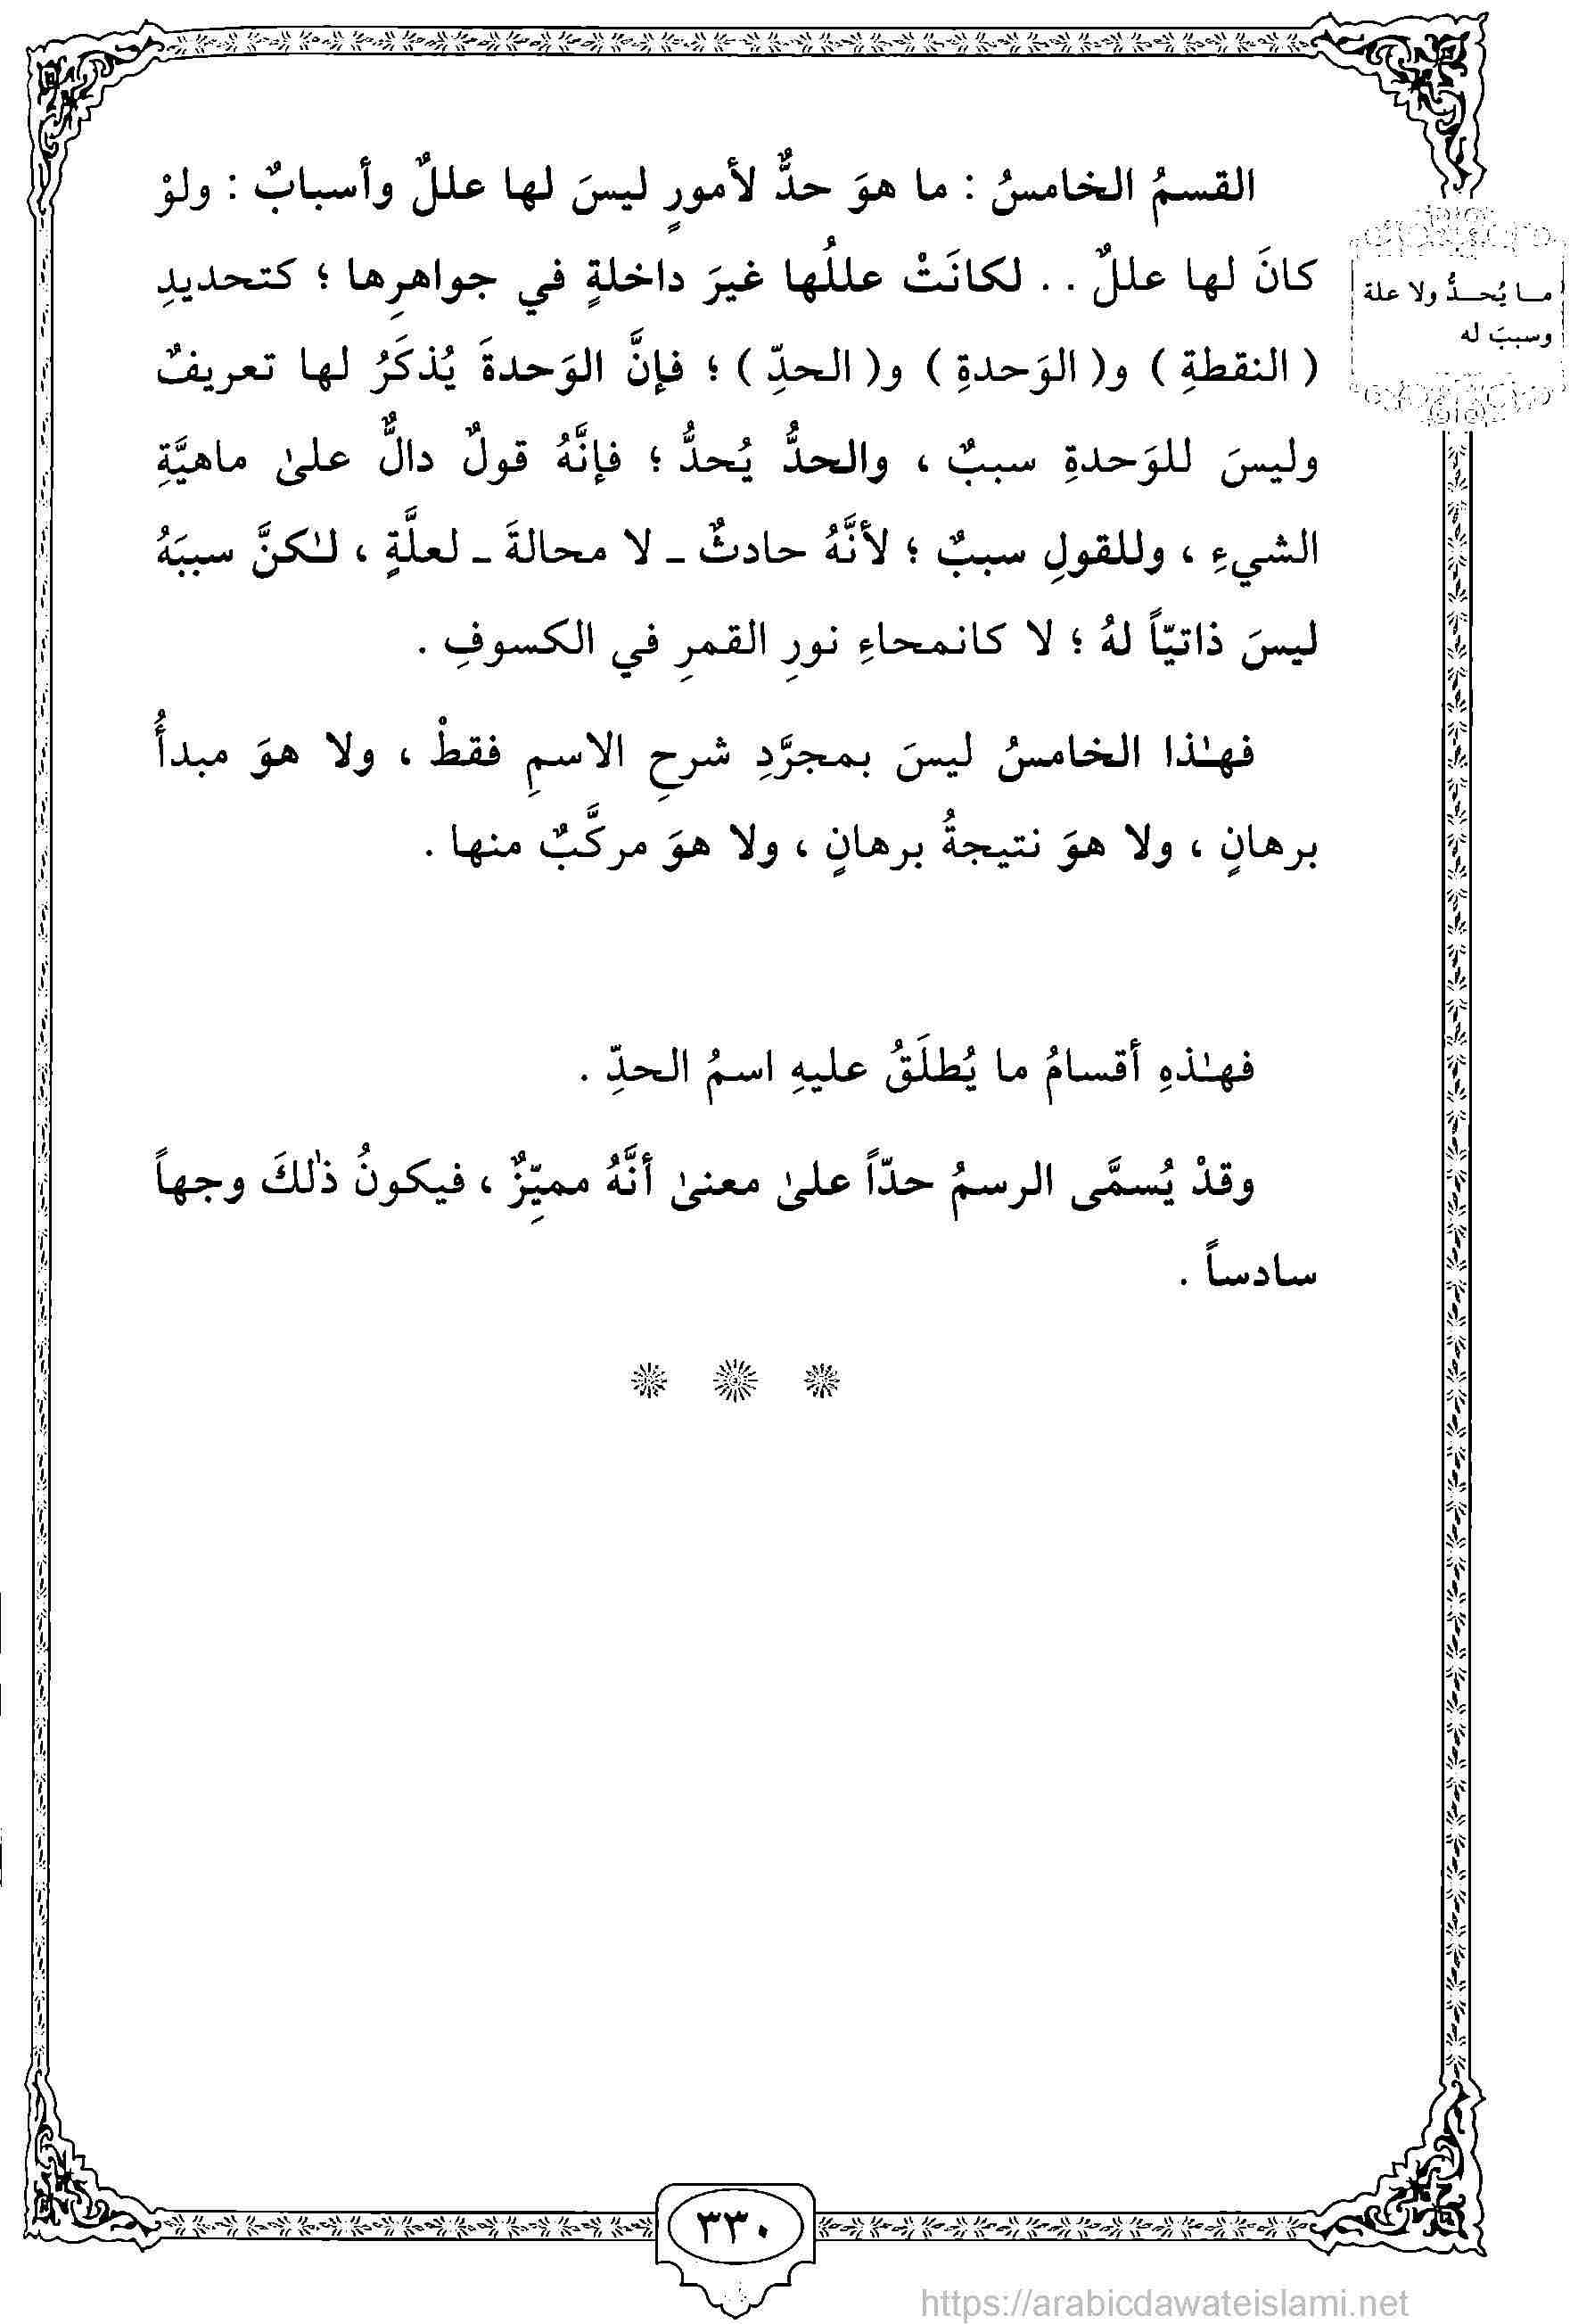 القسمُ الخامسُ : ما هوَ حدٌّ لأمورٍ ليسَ لها عللٌ وأسبابٌ : ولوْ
كانَ لها عللٌ . . لكانَتْ عللُها غيرَ داخلةٍ في جواهرِها ؛ كتحديدِ
( النقطةِ ) و( الوَحدةِ ) و( الحدِّ ) ؛ فإنَّ الوَحدةَ يُذكَرُ لها تعريفٌ
وليسَ للوَحدةِ سببٌ ، والحدُّ يُحدُّ ؛ فإنَّهُ قولٌ دالٌّ علىٰ ماهيَّةِ
الشيءِ ، وللقولِ سببٌ ؛ لأنَّهُ حادثٌ ـ لا محالةَ ـ لعلَّةٍ ، لـٰكنَّ سببَهُ
ليسَ ذاتيّاً لهُ ؛ لا كانمحاءِ نورِ القمرِ في الكسوفِ .
ما يُحـدُّ ولا علة
وسببَ له
فهـٰذا الخامسُ ليسَ بمجرَّدِ شرحِ الاسمِ فقطْ ، ولا هوَ مبدأُ
برهانٍ ، ولا هوَ نتيجةُ برهانٍ ، ولا هوَ مركَّبٌ منها .
فهـٰذهِ أقسامُ ما يُطلَقُ عليهِ اسمُ الحدِّ .
وقدْ يُسمَّى الرسمُ حدّاً علىٰ معنىٰ أنَّهُ مميِّزٌ ، فيكونُ ذٰلكَ وجهاً
سادساً .
٣٣٠
https://arabicdawateislami.net